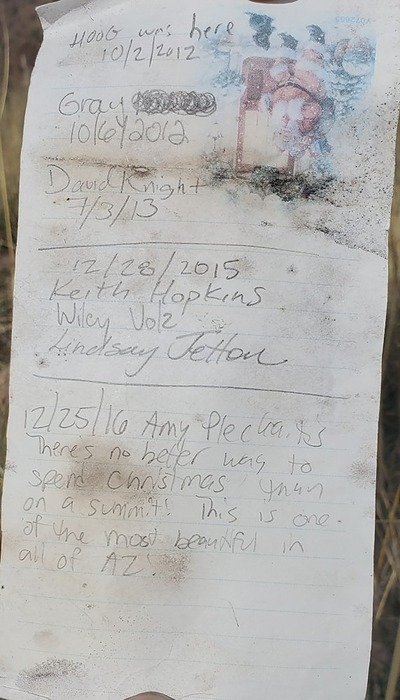 HOOG was here
10/2/2012
Gray
10/6/2012
David Knight
7/3/13
12/28/2015
Keith Hopkins
Wiley Volz
Lindsay Jetton
12/25/16 Amy
There's no better way to
spend Christmas than
on a summit! This is one
of the most beautiful in
all of AZ!